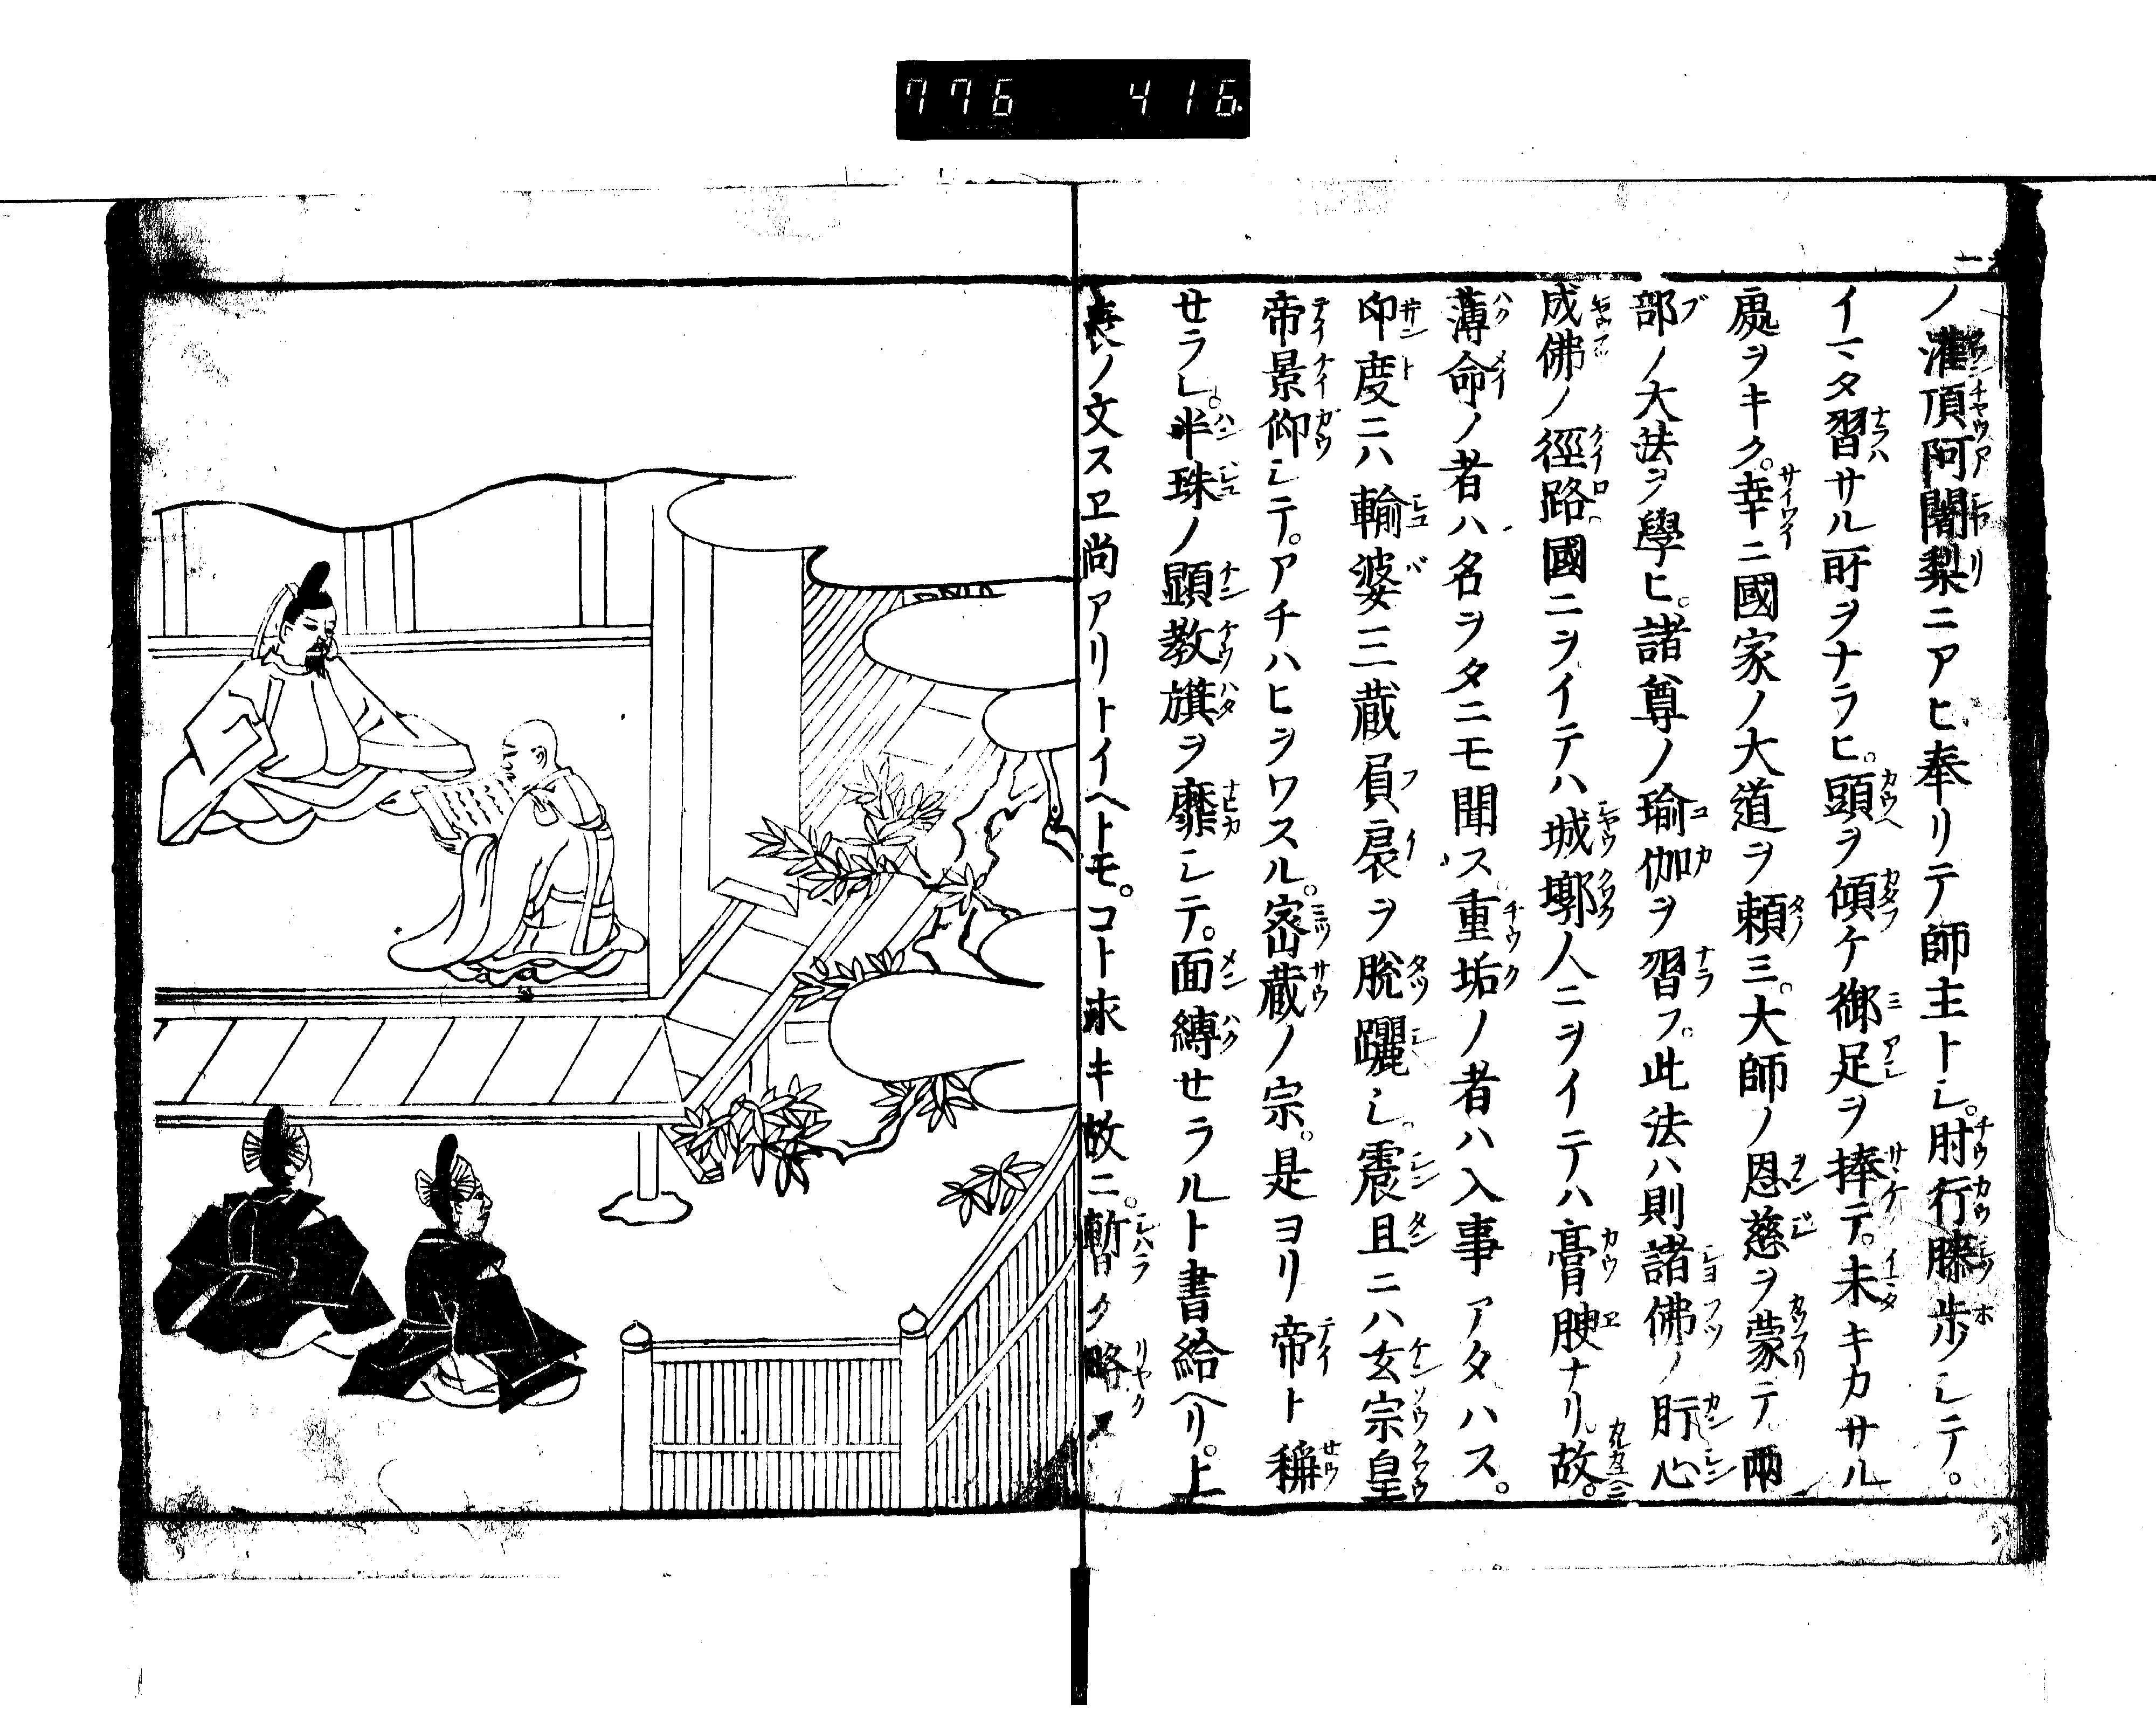 776 416
ノ灌頂阿闍梨ニアヒ奉リテ師主トシ。肘行膝歩シテ。
イマタ習サル所ヲナラヒ。頭ヲ傾ケ御足ヲ捧テ。未キカサル
處ヲキク。幸ニ國家ノ大道ヲ頼ミ。大師ノ恩慈ヲ蒙テ兩
部ノ大法ヲ學ヒ。諸尊ノ瑜伽ヲ習フ。此法ハ則諸佛ノ肝心
成佛ノ徑路。國ニヲイテハ城墎人ニヲイテハ膏腴ナリ。故。
薄命ノ者ハ名ヲタニモ聞ス。重垢ノ者ハ入事アタハス。
印度ニハ輸婆三蔵負扆ヲ脱躧シ。震旦ニハ玄宗皇
帝景仰シテ。アチハヒヲワスル。密蔵ノ宗。是ヨリ帝ト稱
せラレ。半珠ノ顕教旗ヲ靡シテ。面縛せラルト書給ヘリ。上
表ノ文スヱ尚アリトイヘトモ。コト永キ故ニ。暫ク略ス